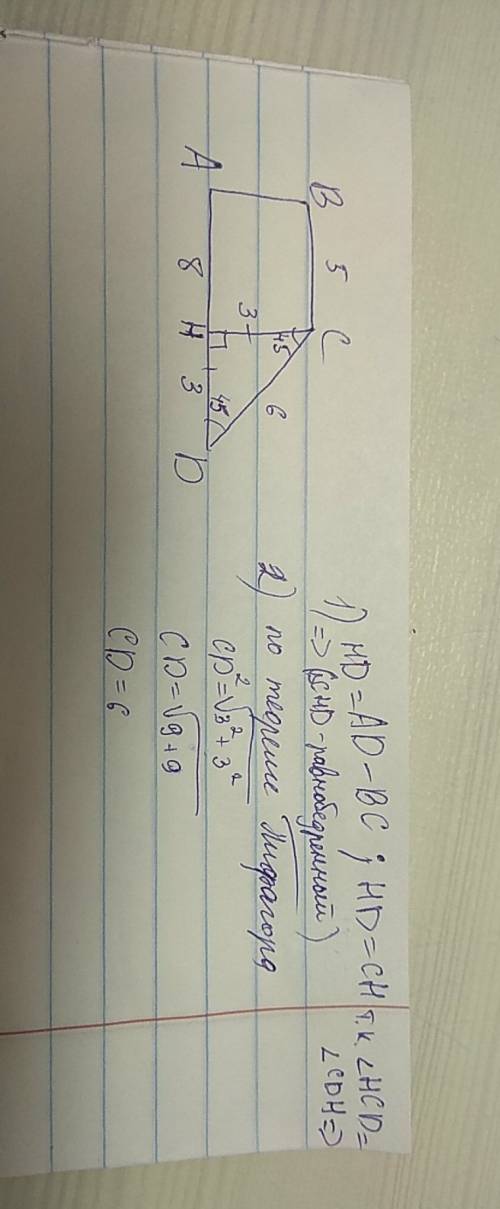 B 5 C
45
3 6
A 8 H 3 45 D
1) HD = AD - BC ; HD = CH т.к. ∠HCD =
∠CDH =>
=> (△CHD - равнобедренный)
2) по теореме Пифагора
CD² = √3² + 3²
CD = √9 + 9
CD = 6